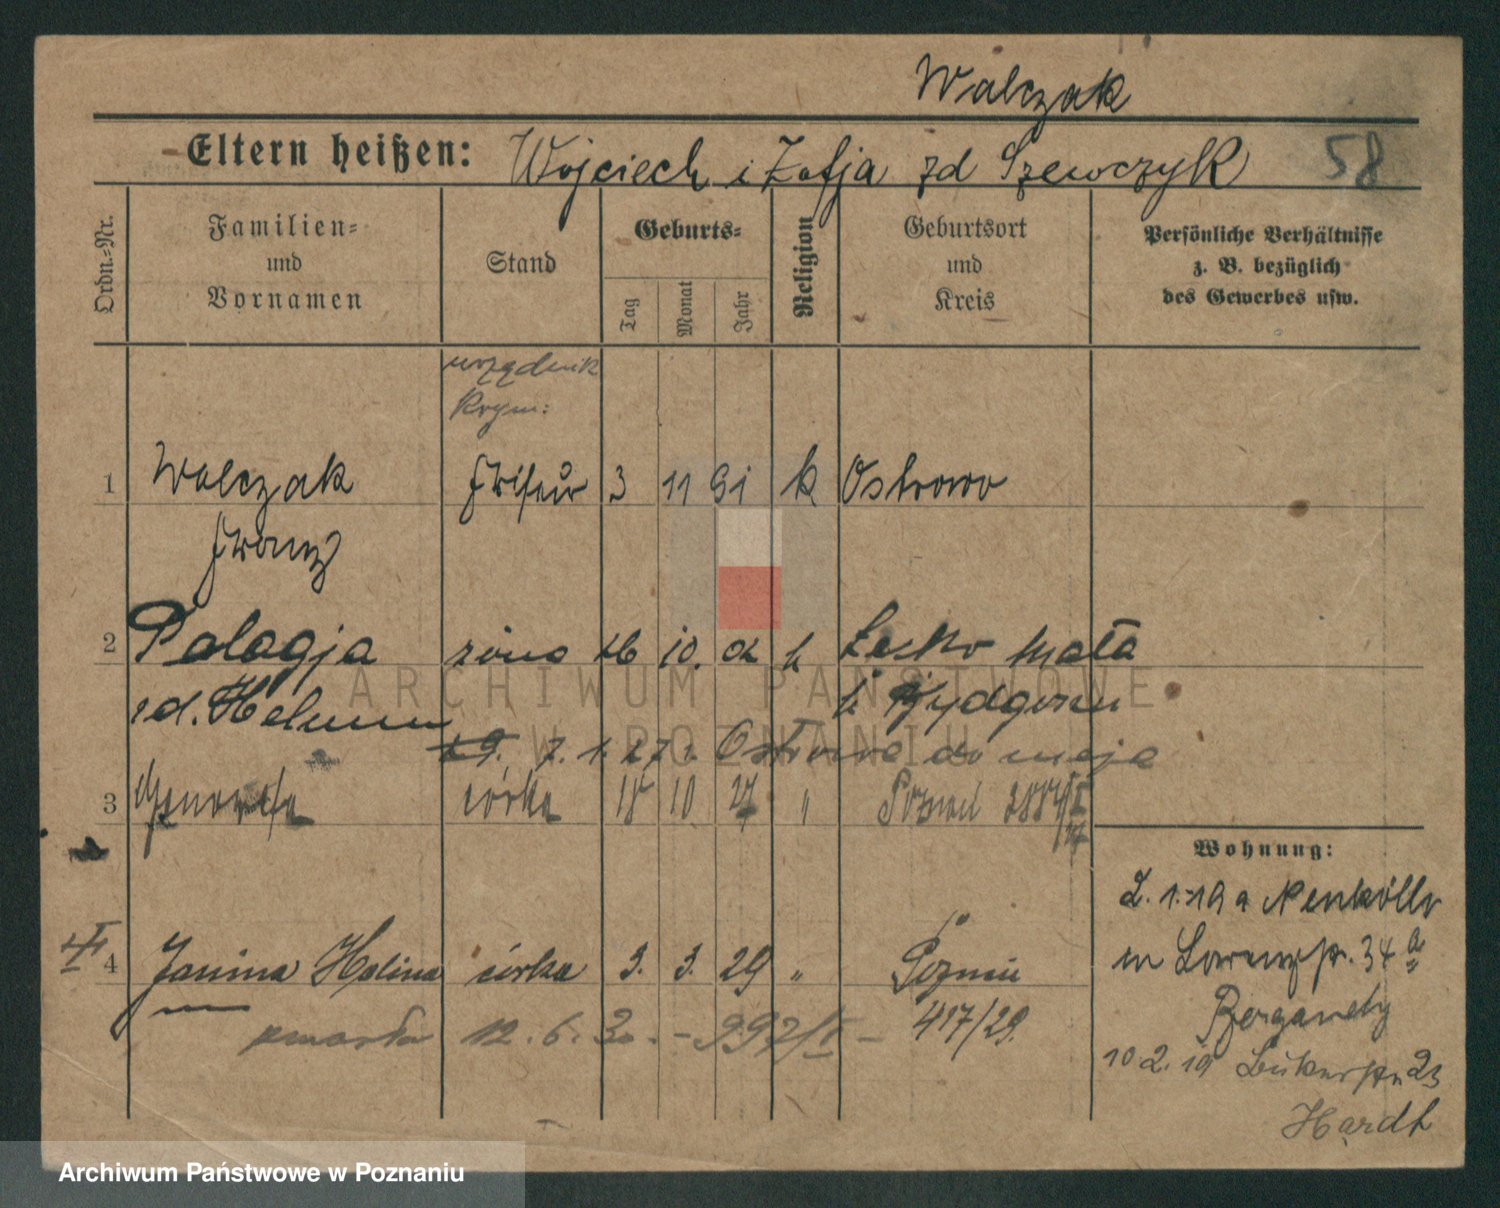 Walczak
Eltern heißen: Wojciech i Zofja zd Szewczyk 58
Ordn.=Nr.
Familien= und Vornamen
Stand
Geburts=
Tag Monat Jahr
Religion
Geburtsort und Kreis
Persönliche Verhältnisse z. B. bezüglich des Gewerbes usw.
urzędnik
Krym:
1 Walczak Friseur 3 11 91 k Ostrowo
Franz
2 Pelagja żona 10. 02 k Łęsko mała
zd.
7. 1. 27 z Ostrowa do męża
3 Genowefa córka 18 10 27 " Poznań
Wohnung:
2. 1. 19 a Neukölln
4 Janina Halina córka 3. 3. 29 " Poznań
34 a
zmarła 12. 6. 30. - 992/II - 417/29.
10 2. 19 23
Hardt
ARCHIWUM PAŃSTWOWE
W POZNANIU
Archiwum Państwowe w Poznaniu